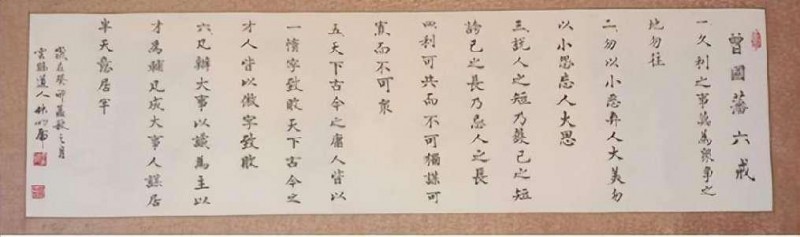 曾國藩六戒
一久利之事莫為眾爭之
地勿往
二勿以小惡弃人大美勿
以小恩忘人大恩
三說人之短乃護己之短
誇己之長乃忌人之長
四利可共而不可獨謀可
寡而不可眾
五天下古今之庸人皆以
一惰字致敗天下古今之
才人皆以傲字致敗
六凡辦大事以識為主以
才為輔凡成大事人謀居
半天意居半
歲在癸卯孟秋之月
道人林